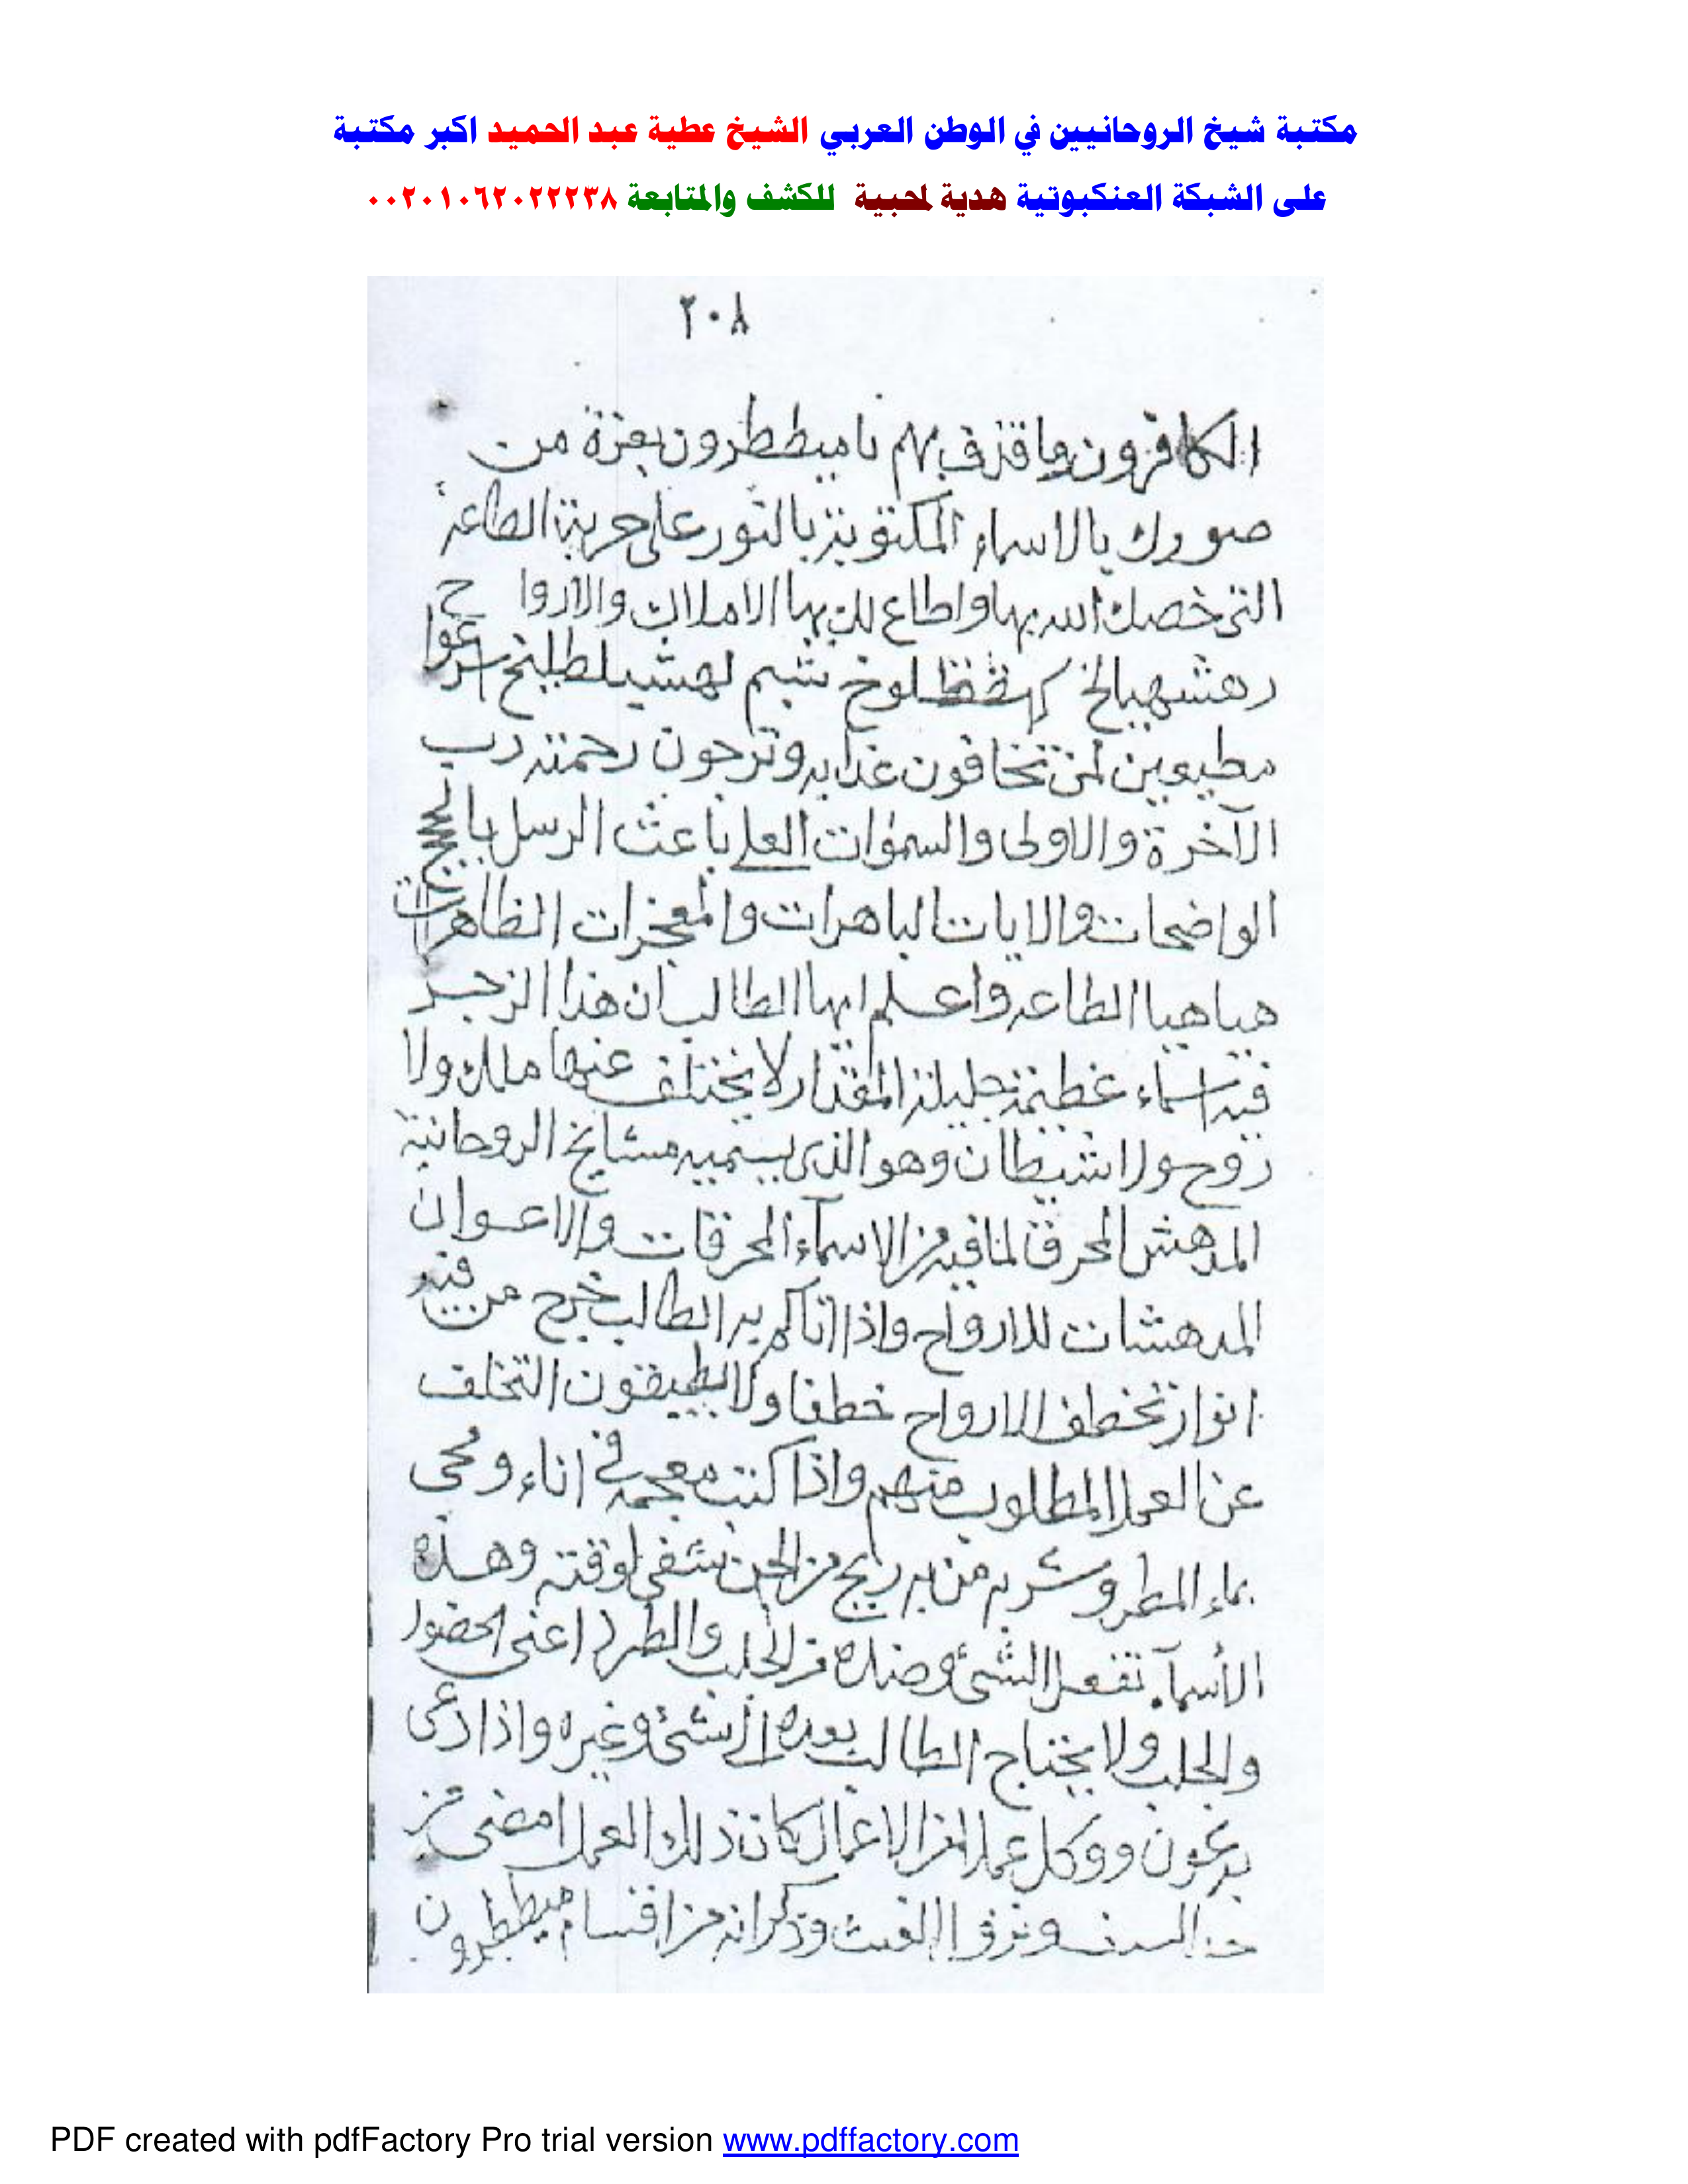 مكتبة شيخ الروحانيين في الوطن العربي الشيخ عطية عبد الحميد اكبر مكتبة
على الشبكة العنكبوتية هدية لمحبية للكشف والمتابعة ٠٠٢٠١٠٦٢٠٢٢٢٣٨
٢٠٨
الكافرون بهم يا ميططرون بعزة من
صورك بالاسماء المكتوبة بالنور على حربة الطاعة
التى خصك الله بها واطاع لك بها الاملاك والارواح
اسرعوا
مطيعين لمن تخافون عذابه وترجون رحمته رب
الآخرة والاولى والسموات العلى باعث الرسل
الواضحات والايات الباهرات والمعجزات الظاهرات
هيا هيا الطاعه واعلم ايها الطالب ان هذا الزجر
فيه اسماء عظيمة جليلة المقدار لا يختلف عنها ملك ولا
روح ولا شيطان وهو الذى يسميه مشايخ الروحانية
المدهش المحرق لما فيه من الاسماء المحرقات والاعوان
المدهشات للارواح واذا به الطالب خرج من فيه
انوار تخطف الارواح خطفا ولا يطيقون التخلف
عن العمل المطلوب منهم واذا كتبت فى اناء ومحى
بماء المطر وشربه من به ريح من الجن شفى لوقته وهذه
الأسماء تفعل الشئ وضده من الجلب والطرد اعنى الحضور
والجلب ولا يحتاج الطالب بعده الى شئ وغيره واذا دعى
ووكل عملا من الاعمال كان ذلك العمل امضى من
وذكر انه من اقسام ميططرون
PDF created with pdfFactory Pro trial version www.pdffactory.com